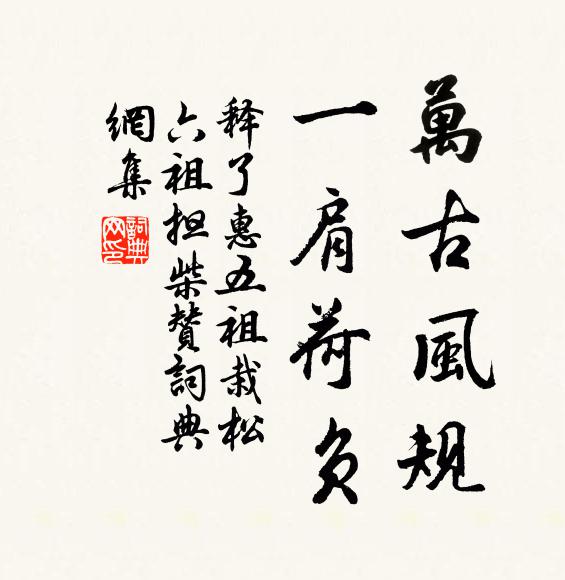 萬古風規
一肩荷負
释了惠五祖栽松
六祖担柴贊詞典
網集
詞典網印